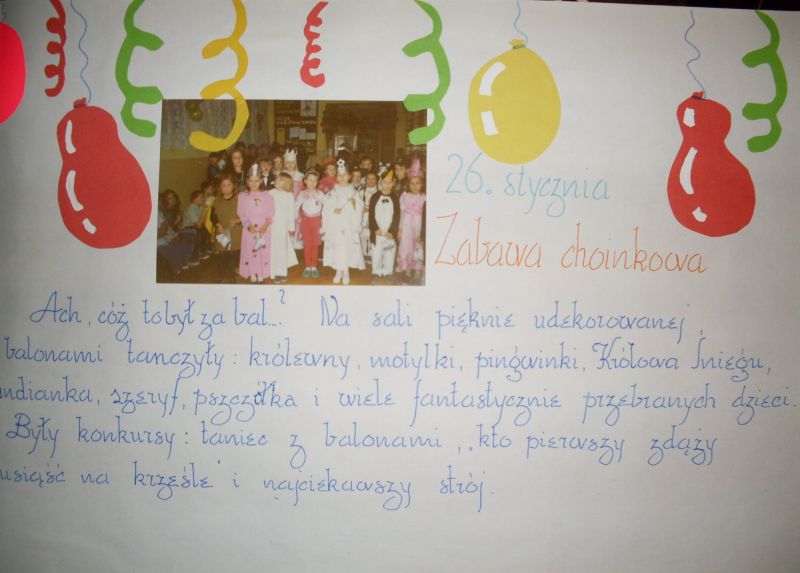 26. stycznia
Zabawa choinkowa
Ach, cóż to był za bal...? Na sali pięknie udekorowanej
balonami tańczyły: królewny, motylki, pingwinki, Królowa Śniegu,
indianka, szeryf, pszczółka i wiele fantastycznie przebranych dzieci.
Były konkursy: taniec z balonami, „kto pierwszy zdąży
usiąść na krześle" i najciekawszy strój.